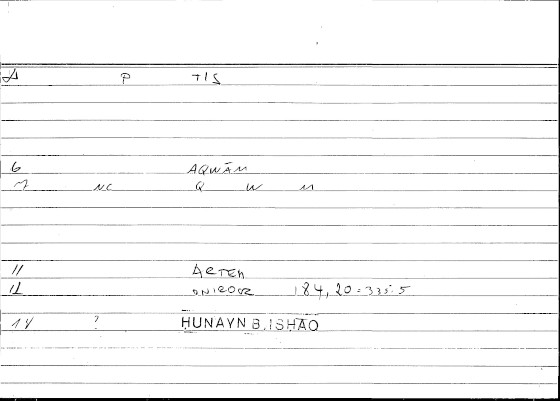 1 P τις
6 AQWĀM
7 NC Q W M
11 ARTEM
12 ONIROCR 184,20 = 335.5
14 ? ḤUNAYN B. ISḤĀQ